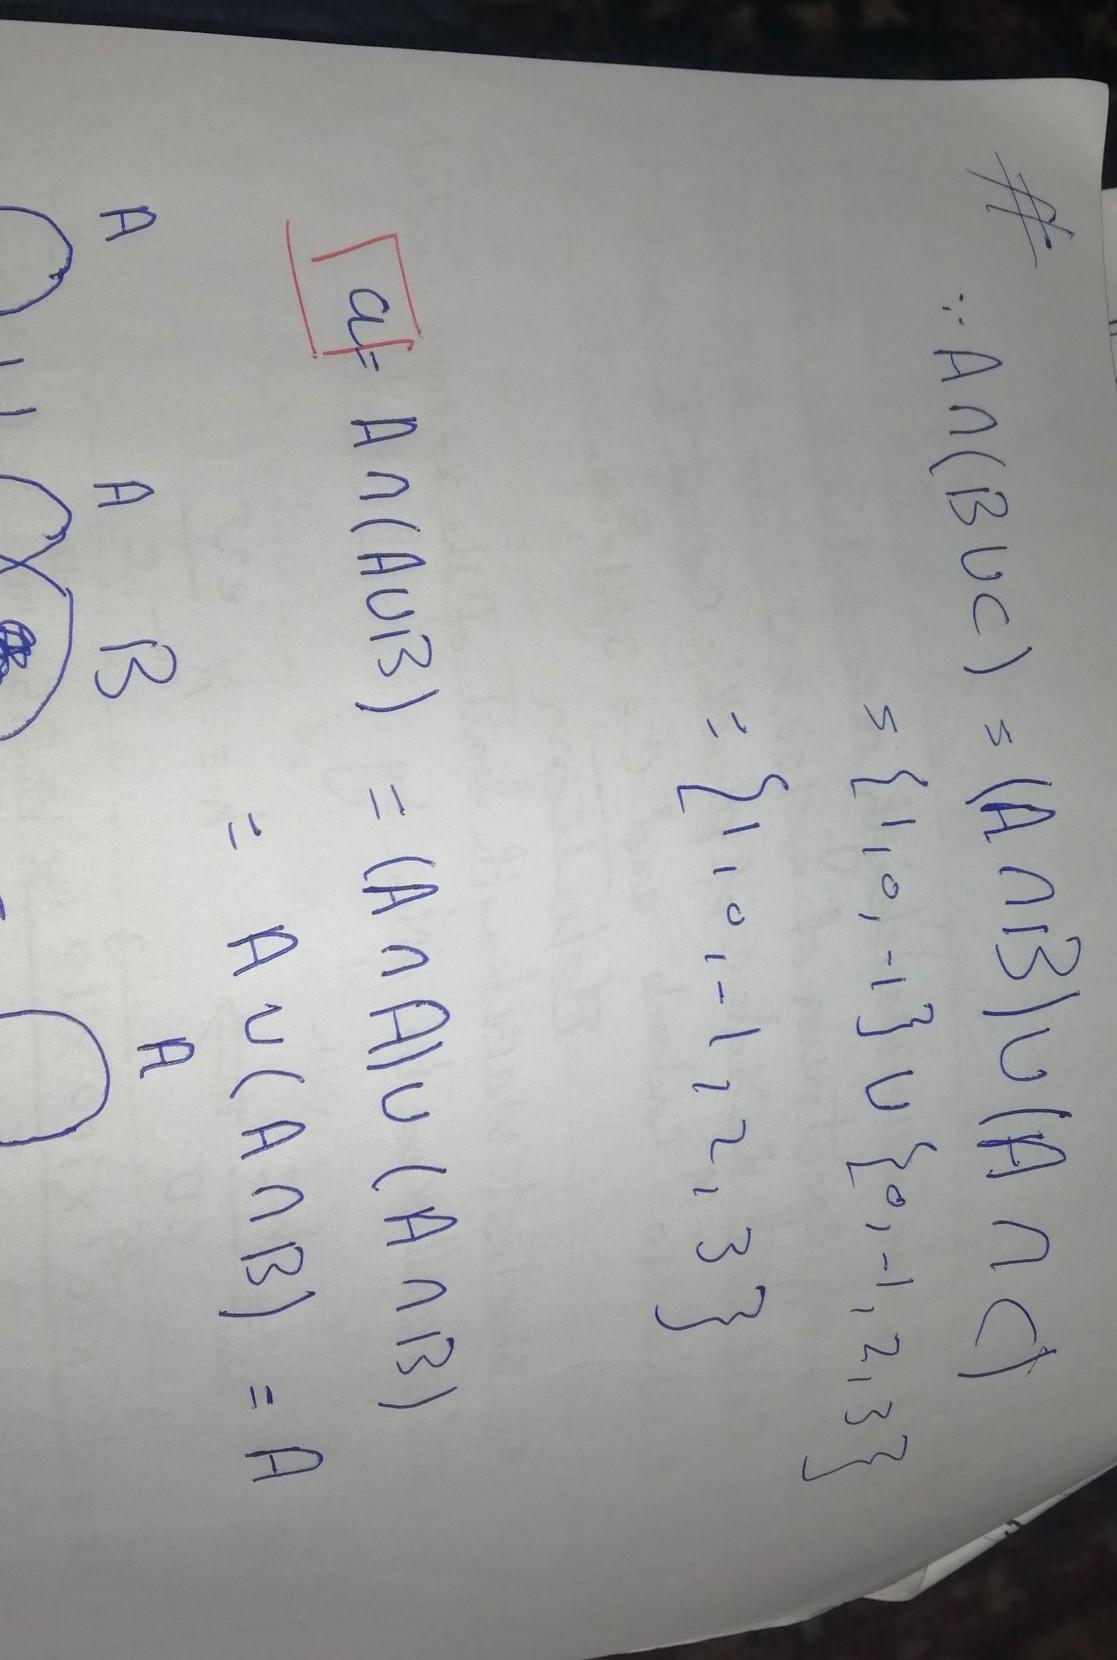 # ∵ A∩(B∪C) = (A∩B)∪(A∩C)
= {1,0,-1} ∪ {0,-1,2,3}
= {1,0,-1,2,3}
a = A∩(A∪B) = (A∩A)∪(A∩B)
= A∪(A∩B) = A
A A B A